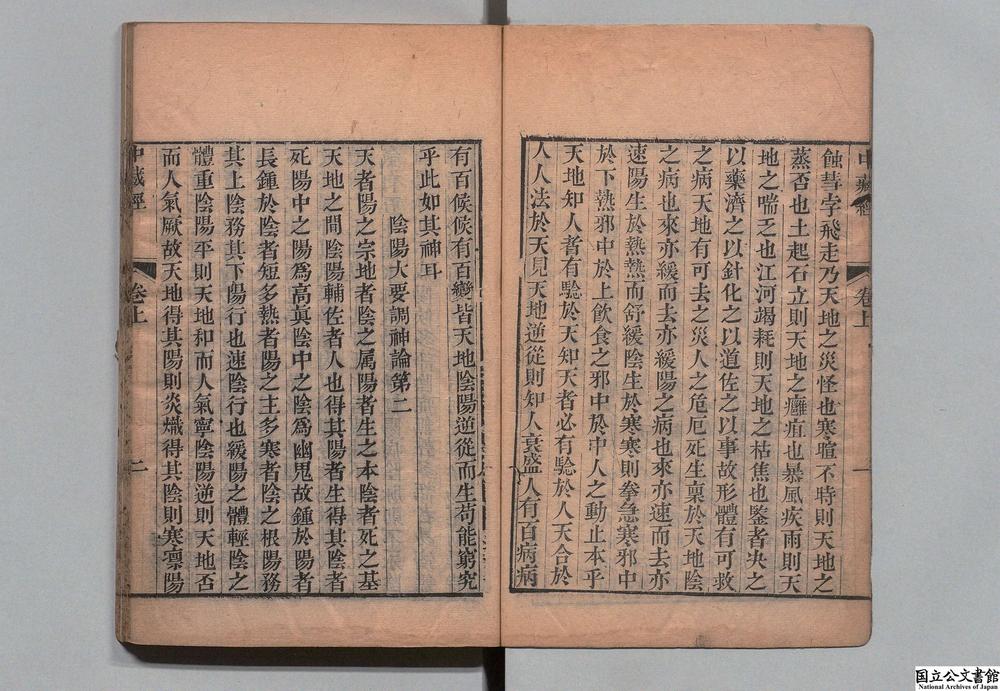 中藏經
卷上
一
蝕彗孛飛走乃天地之災怪也寒暄不時則天地之
蒸否也土起石立則天地之癰疽也暴風疾雨則天
地之喘乏也江河竭耗則天地之枯焦也鑒者决之
以藥濟之以針化之以道佐之以事故形體有可救
之病天地有可去之災人之危厄死生稟於天地陰
之病也來亦緩而去亦緩陽之病也來亦速而去亦
速陽生於熱熱而舒緩陰生於寒寒則拳急寒邪中
於下熱邪中於上飲食之邪中於中人之動止本乎
天地知人者有驗於天知天者必有驗於人天合於
人人法於天見天地逆從則知人衰盛人有百病病
有百候候有百變皆天地陰陽逆從而生苟能窮究
乎此如其神耳
陰陽大要調神論第二
天者陽之宗地者陰之属陽者生之本陰者死之基
天地之間陰陽輔佐者人也得其陽者生得其陰者
死陽中之陽爲高眞陰中之陰爲幽鬼故鍾於陽者
長鍾於陰者短多熱者陽之主多寒者陰之根陽務
其上陰務其下陽行也速陰行也緩陽之體輕陰之
體重陰陽平則天地和而人氣寧陰陽逆則天地否
而人氣厥故天地得其陽則炎熾得其陰則寒凛陽
中藏經
卷上
二
国立公文書館
National Archives of Japan